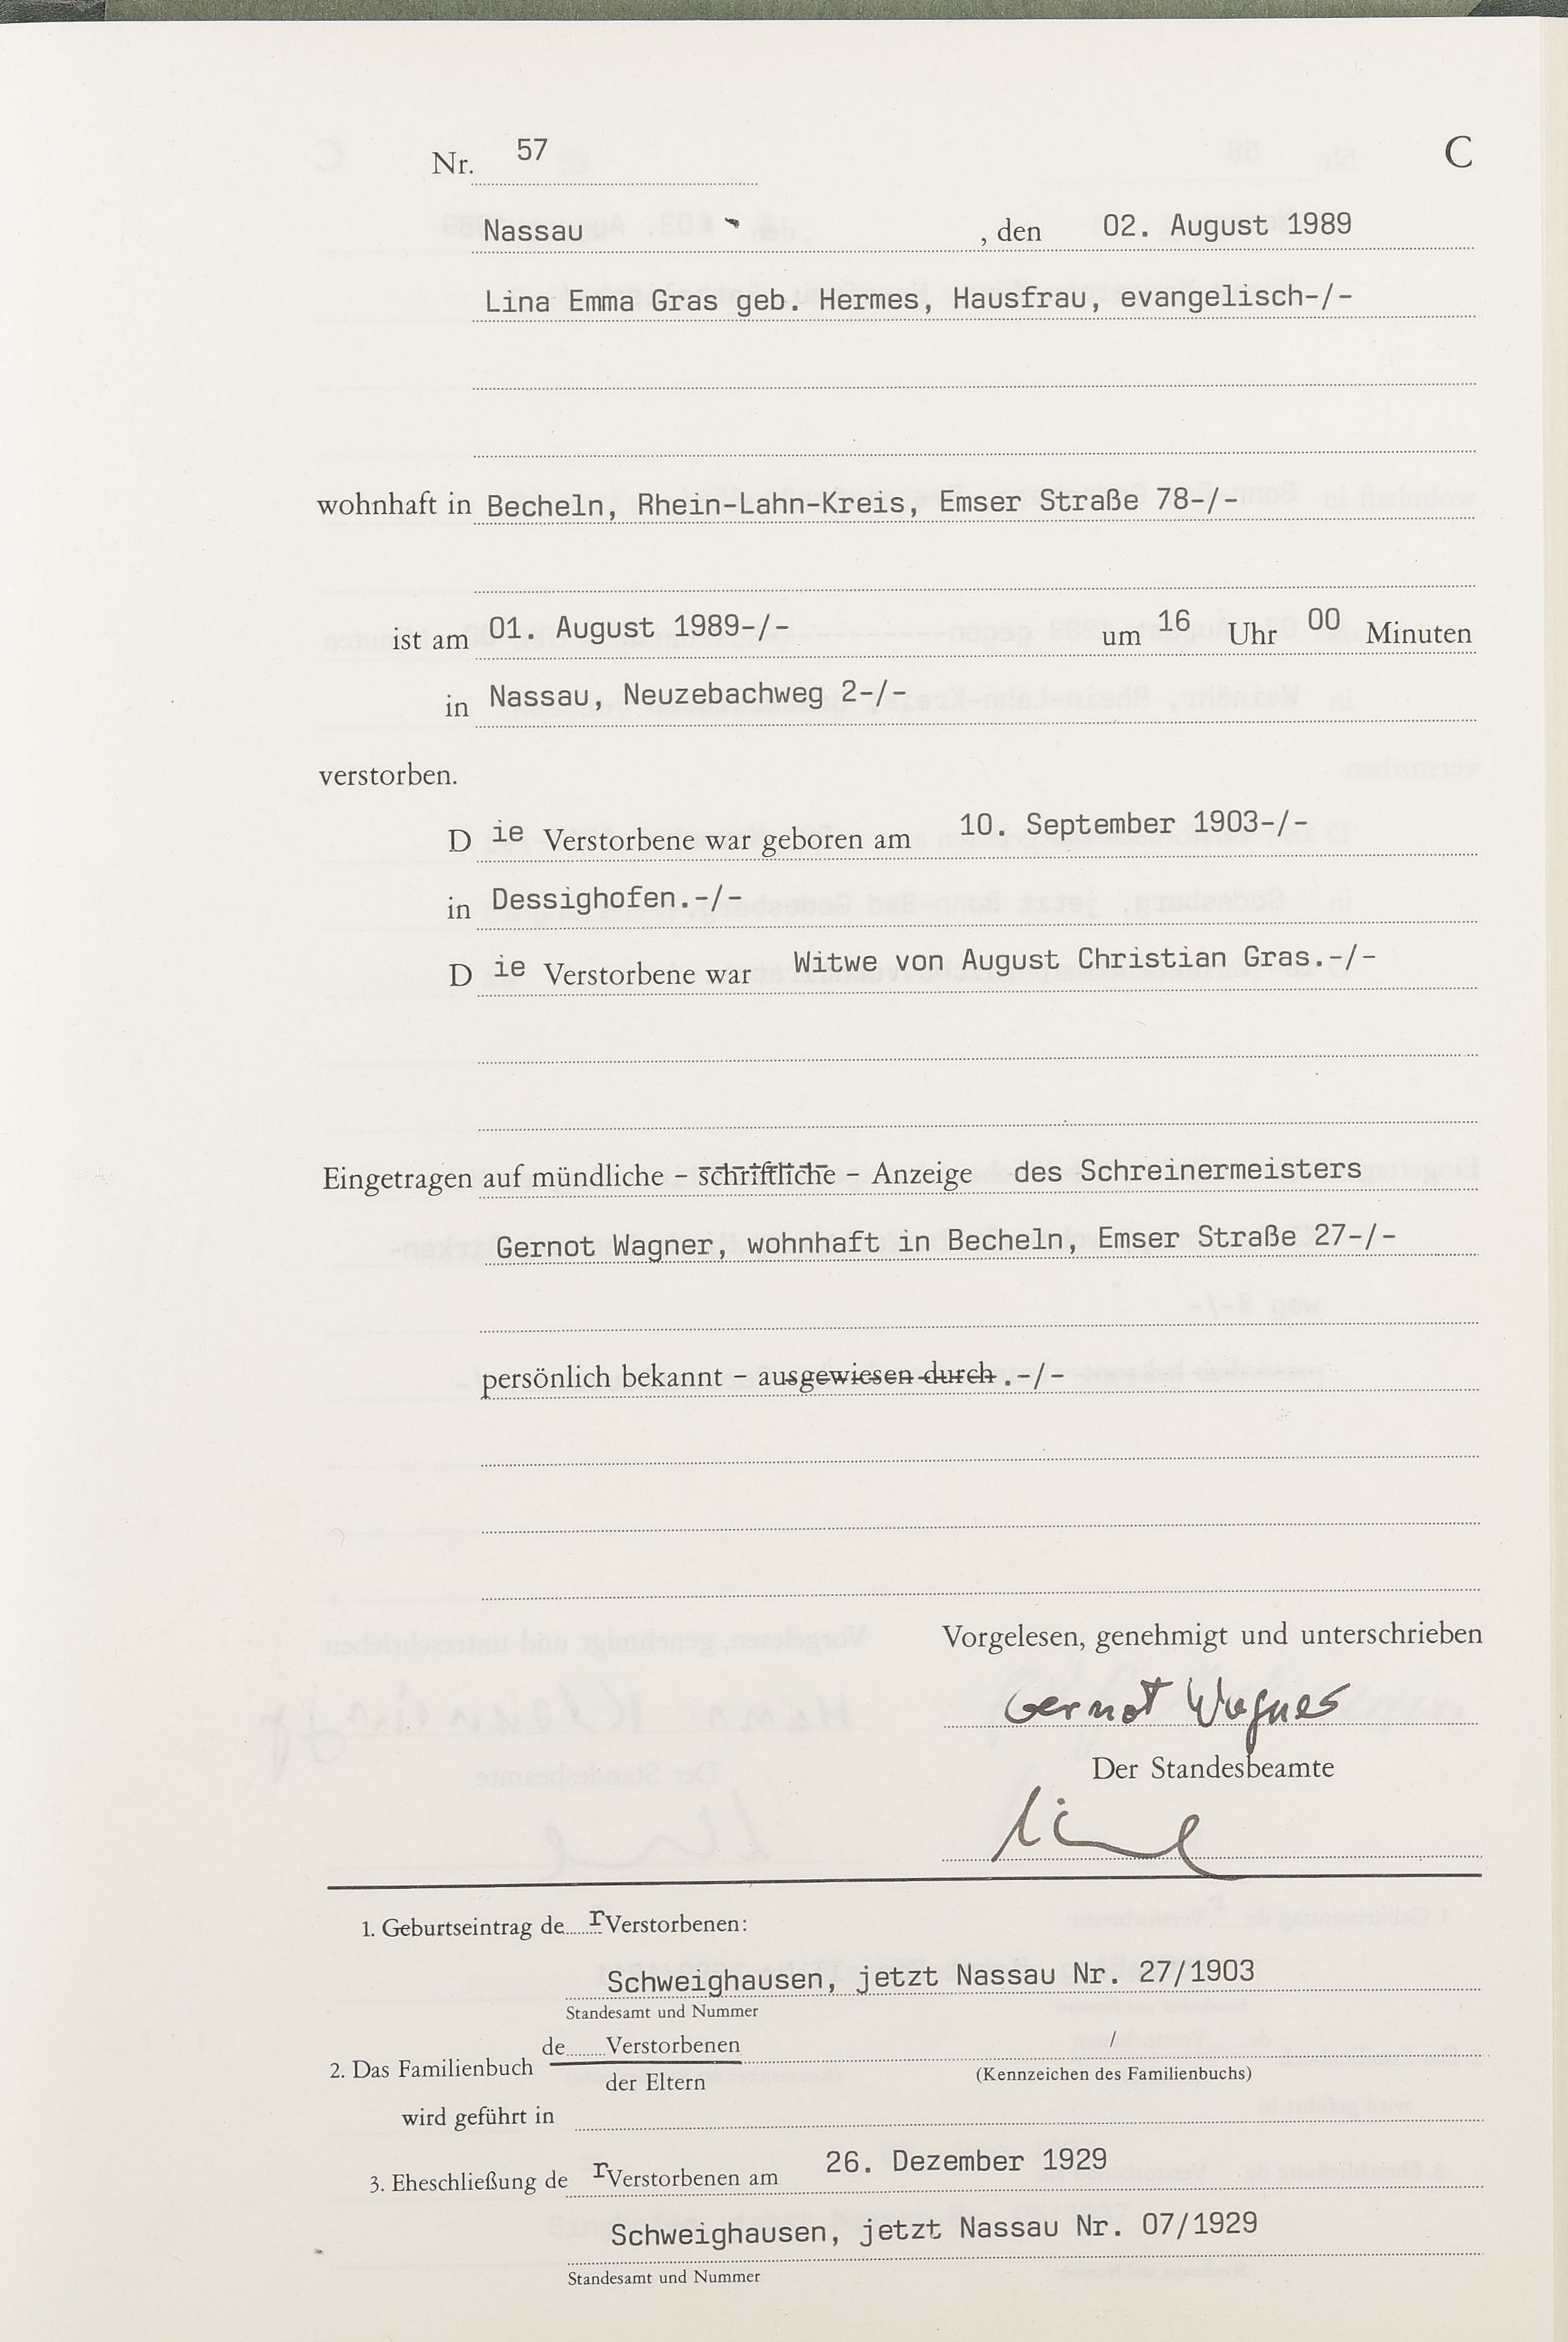 Nr. 57 C
Nassau , den 02. August 1989
Lina Emma Gras geb. Hermes, Hausfrau, evangelisch-/-
wohnhaft in Becheln, Rhein-Lahn-Kreis, Emser Straße 78-/-
ist am 01. August 1989-/- um 16 Uhr 00 Minuten
in Nassau, Neuzebachweg 2-/-
verstorben.
D ie Verstorbene war geboren am 10. September 1903-/-
in Dessighofen.-/-
D ie Verstorbene war Witwe von August Christian Gras.-/-
Eingetragen auf mündliche – schriftliche – Anzeige des Schreinermeisters
Gernot Wagner, wohnhaft in Becheln, Emser Straße 27-/-
persönlich bekannt – ausgewiesen durch .-/-
Vorgelesen, genehmigt und unterschrieben
Gernot Wagner
Der Standesbeamte
1. Geburtseintrag de r Verstorbenen:
Schweighausen, jetzt Nassau Nr. 27/1903
Standesamt und Nummer
de Verstorbenen /
2. Das Familienbuch
der Eltern (Kennzeichen des Familienbuchs)
wird geführt in
3. Eheschließung de r Verstorbenen am 26. Dezember 1929
Schweighausen, jetzt Nassau Nr. 07/1929
Standesamt und Nummer